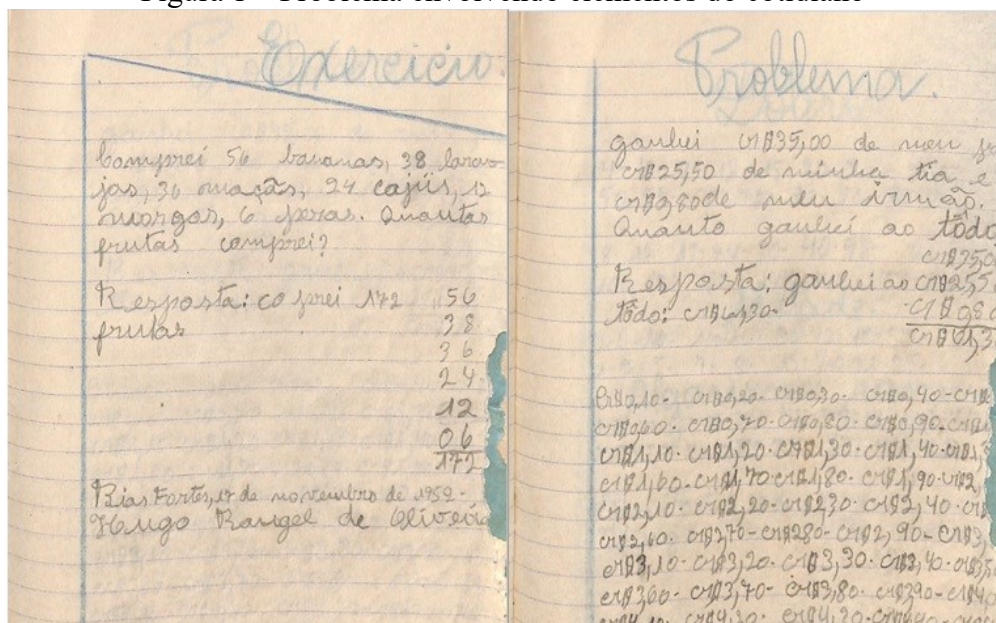 Exercício.
Comprei 56 bananas, 38 laran-
jas, 36 maçãs, 24 cajús, 12
mangas, 6 peras. Quantas
frutas comprei?
Resposta: co prei 172
frutas
56
38
36
24
12
06
172
Bias Fortes, 17 de novembro de 1952-
Hugo Rangel de Oliveira
Problema.
ganhei cr$35,00 de meu
cr$25,50 de minha tia e
cr$0,80 de meu irmão.
Quanto ganhei ao todo
cr$35,0
Resposta: ganhei ao cr$25,5
todo: cr$61,30-
cr$0,80
cr$61,3
cr$0,10- cr$0,20- cr$0,30- cr$0,40-
cr$0,60- cr$0,70- cr$0,80- cr$0,90-
cr$1,10- cr$1,20- cr$1,30- cr$1,40-
cr$1,60- cr$1,70- cr$1,80- cr$1,90-
cr$2,10- cr$2,20- cr$2,30- cr$2,40-
cr$2,60- cr$2,70- cr$2,80- cr$2,90-
cr$3,10- cr$3,20- cr$3,30- cr$3,40-
cr$3,60- cr$3,70- cr$3,80- cr$3,90-